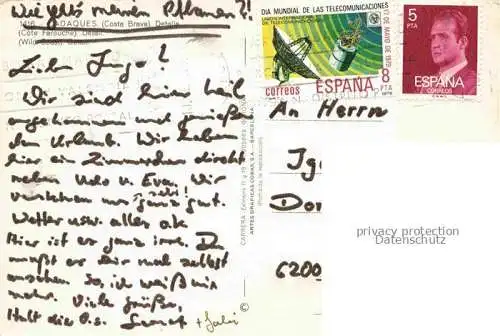 Wie geht's meinen Pflanzen?!
1416 CADAQUES (Costa Brava) Detalle
(Côte Farouche) Détail
(Wild Coast) Detail
DIA MUNDIAL DE LAS TELECOMUNICACIONES
17 DE MAYO DE 1979
ESPAÑA
CORREOS
8 PTA
5 PTA
ESPAÑA
CORREOS
Lieber Ingo!
Wir sind hier heil
angekommen und genießen
den Urlaub. Wir haben
hier ein Zimmerchen direkt
neben Udo u. Eva. Wir
verstehen uns ganz gut.
Wetter usw. alles o.k.
Hier ist es ganz irre. Du
mußt es Dir mal selbst
ansehen. So, ich weiß nix
mehr. Viele Grüße,
Halt die O.
+ Gabi
ARTES GRAFICAS COBAS, S.A. - BARCELONA
(Prohibida la reproducción)
An Herrn
6200
privacy protection
Datenschutz